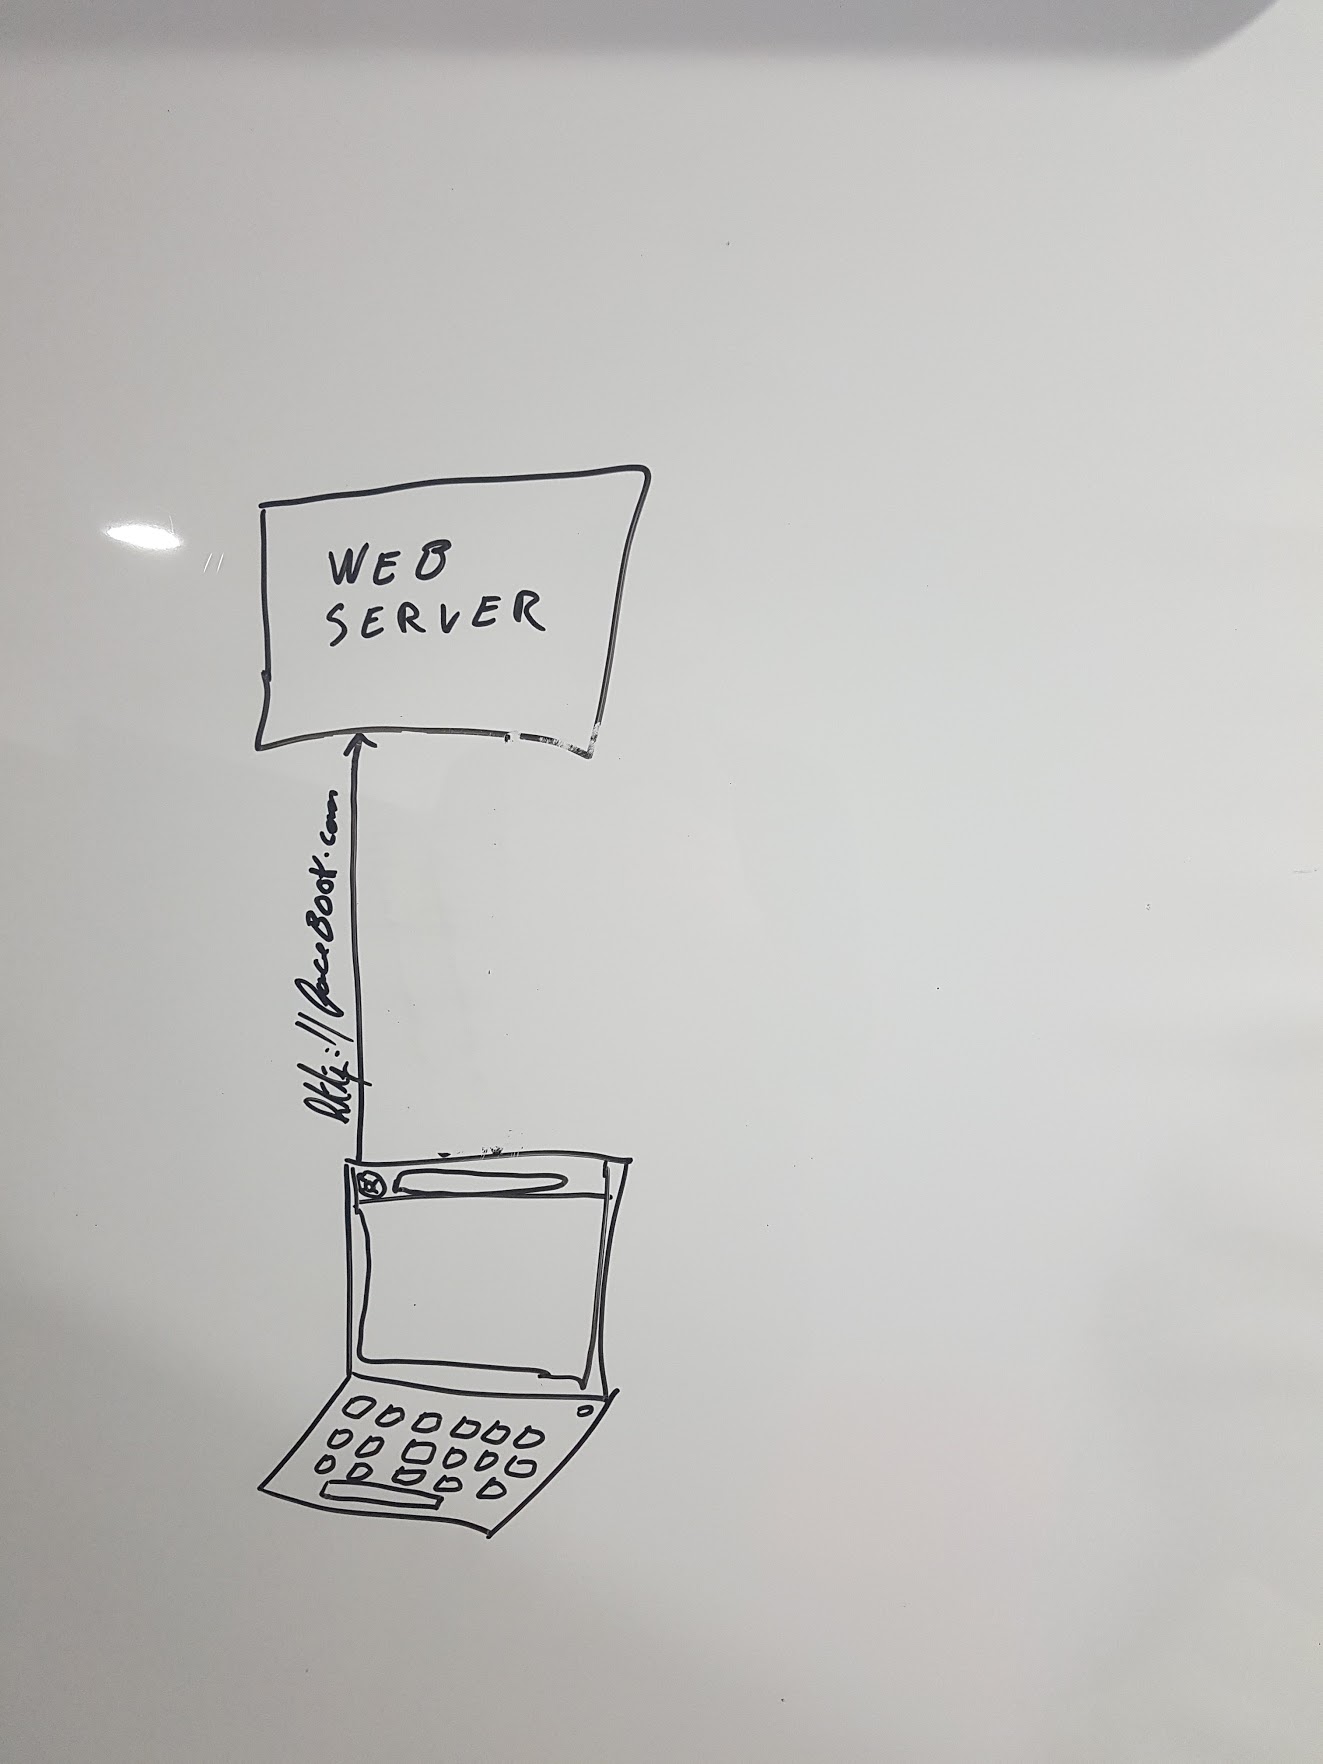 WEB
SERVER
http://faceBook.com